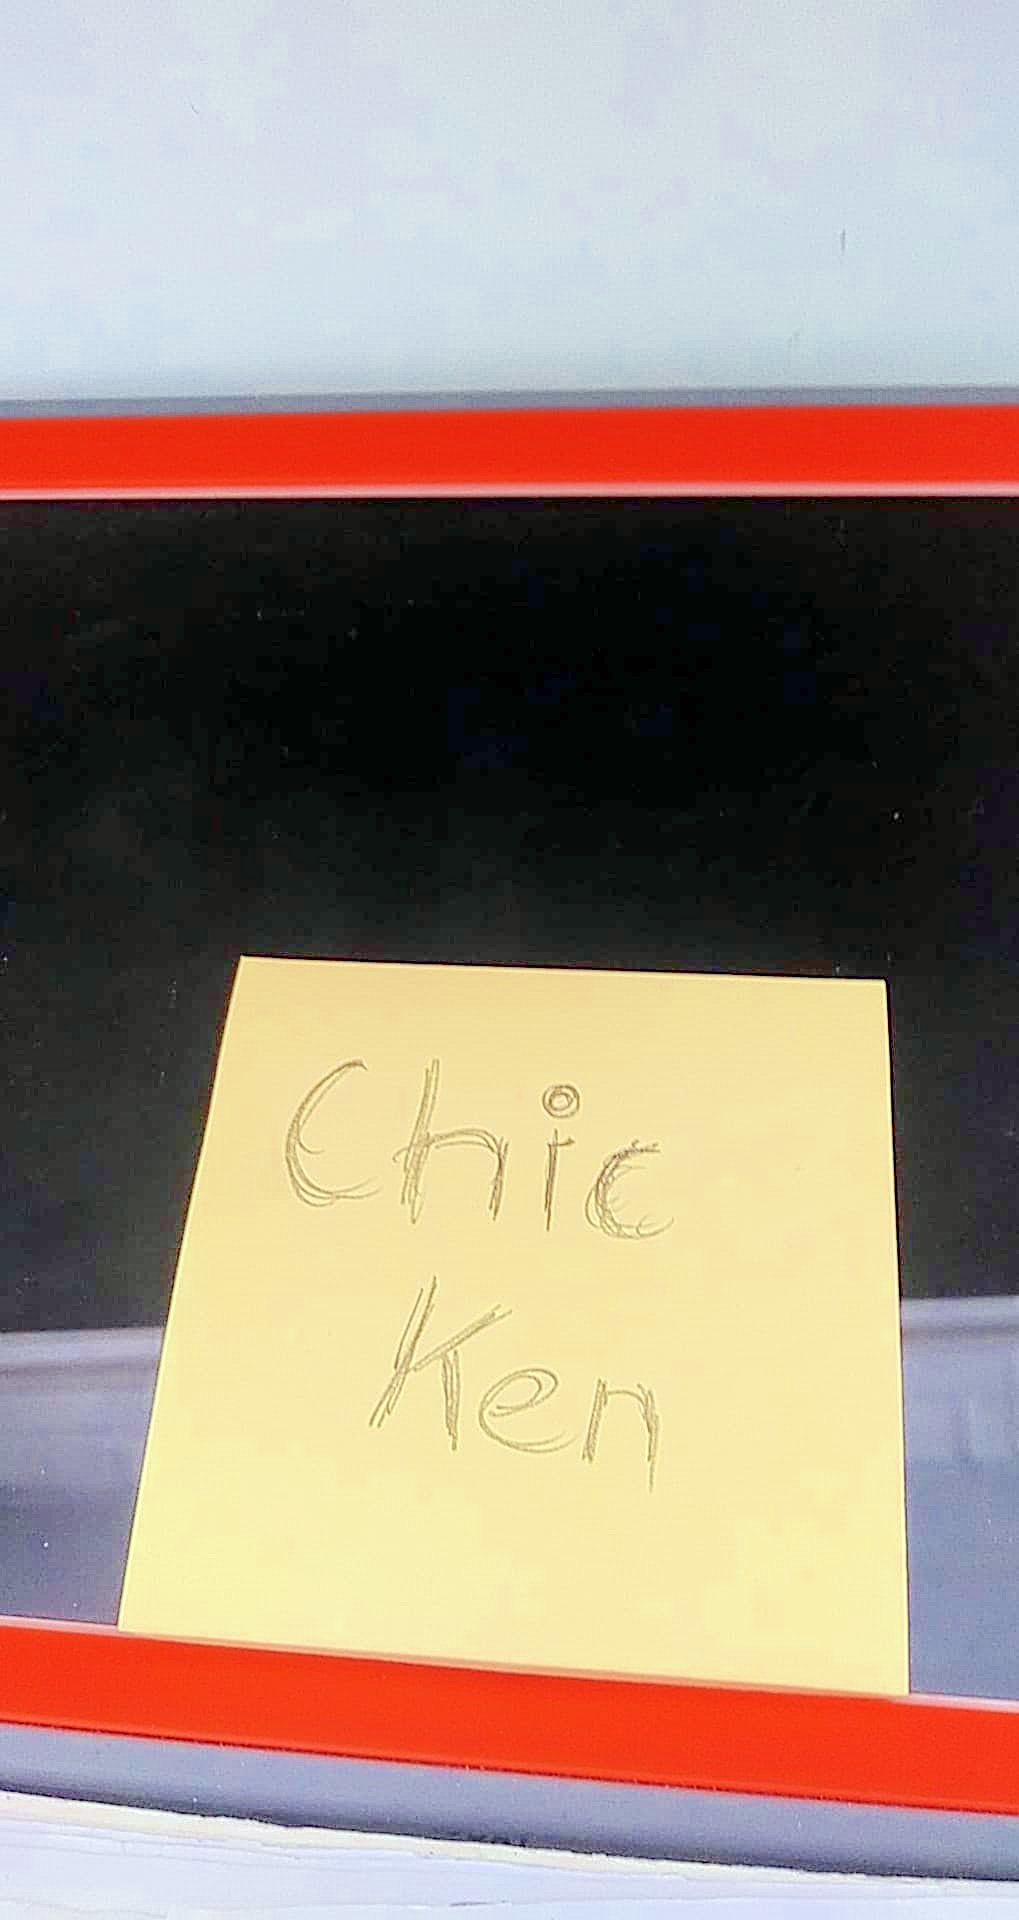 Chic
Ken